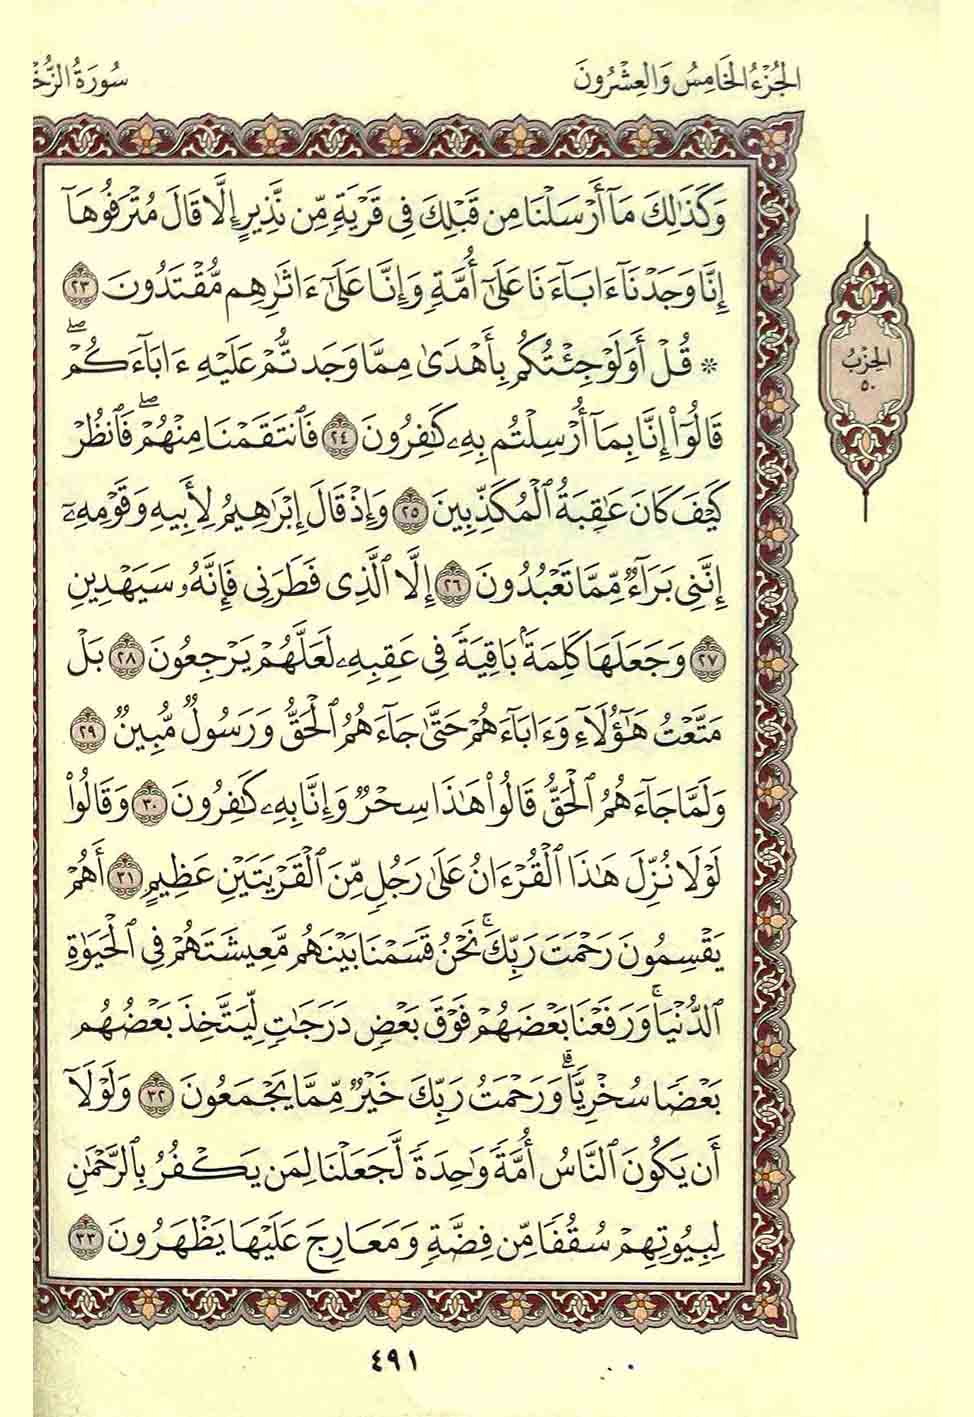 الجزء الخامس والعشرون
سورة الزخ
وَكَذَٰلِكَ مَآ أَرْسَلْنَا مِن قَبْلِكَ فِى قَرْيَةٍ مِّن نَّذِيرٍ إِلَّا قَالَ مُتْرَفُوهَآ
إِنَّا وَجَدْنَآ ءَابَآءَنَا عَلَىٰٓ أُمَّةٍ وَإِنَّا عَلَىٰٓ ءَاثَٰرِهِم مُّقْتَدُونَ ٢٣
۞ قُلْ أَوَلَوْ جِئْتُكُم بِأَهْدَىٰ مِمَّا وَجَدتُّمْ عَلَيْهِ ءَابَآءَكُمْۖ
قَالُوٓا۟ إِنَّا بِمَآ أُرْسِلْتُم بِهِۦ كَٰفِرُونَ ٢٤ فَٱنتَقَمْنَا مِنْهُمْۖ فَٱنظُرْ
كَيْفَ كَانَ عَٰقِبَةُ ٱلْمُكَذِّبِينَ ٢٥ وَإِذْ قَالَ إِبْرَٰهِيمُ لِأَبِيهِ وَقَوْمِهِۦٓ
إِنَّنِى بَرَآءٌ مِّمَّا تَعْبُدُونَ ٢٦ إِلَّا ٱلَّذِى فَطَرَنِى فَإِنَّهُۥ سَيَهْدِينِ
٢٧ وَجَعَلَهَا كَلِمَةًۢ بَاقِيَةً فِى عَقِبِهِۦ لَعَلَّهُمْ يَرْجِعُونَ ٢٨ بَلْ
مَتَّعْتُ هَٰٓؤُلَآءِ وَءَابَآءَهُمْ حَتَّىٰ جَآءَهُمُ ٱلْحَقُّ وَرَسُولٌ مُّبِينٌ ٢٩
وَلَمَّا جَآءَهُمُ ٱلْحَقُّ قَالُوا۟ هَٰذَا سِحْرٌ وَإِنَّا بِهِۦ كَٰفِرُونَ ٣٠ وَقَالُوا۟
لَوْلَا نُزِّلَ هَٰذَا ٱلْقُرْءَانُ عَلَىٰ رَجُلٍ مِّنَ ٱلْقَرْيَتَيْنِ عَظِيمٍ ٣١ أَهُمْ
يَقْسِمُونَ رَحْمَتَ رَبِّكَۚ نَحْنُ قَسَمْنَا بَيْنَهُم مَّعِيشَتَهُمْ فِى ٱلْحَيَوٰةِ
ٱلدُّنْيَاۚ وَرَفَعْنَا بَعْضَهُمْ فَوْقَ بَعْضٍ دَرَجَٰتٍ لِّيَتَّخِذَ بَعْضُهُم
بَعْضًا سُخْرِيًّاۗ وَرَحْمَتُ رَبِّكَ خَيْرٌ مِّمَّا يَجْمَعُونَ ٣٢ وَلَوْلَآ
أَن يَكُونَ ٱلنَّاسُ أُمَّةً وَٰحِدَةً لَّجَعَلْنَا لِمَن يَكْفُرُ بِٱلرَّحْمَٰنِ
لِبُيُوتِهِمْ سُقُفًا مِّن فِضَّةٍ وَمَعَارِجَ عَلَيْهَا يَظْهَرُونَ ٣٣
الحزب
٥٠
٤٩١